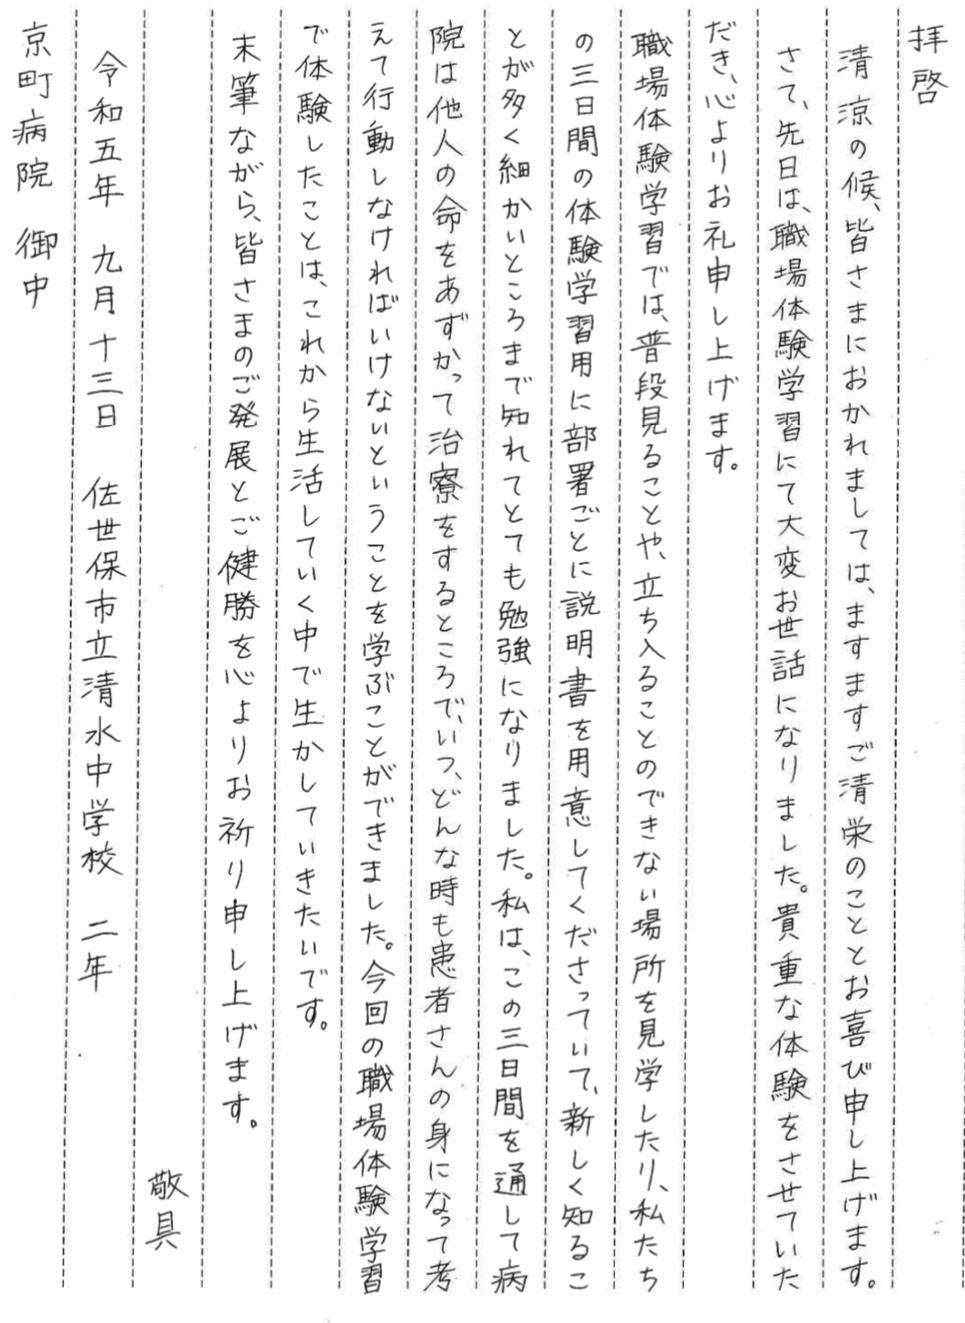 拝啓
清涼の候、皆さまにおかれましては、ますますご清栄のこととお喜び申し上げます。
さて、先日は、職場体験学習にて大変お世話になりました。貴重な体験をさせていた
だき、心よりお礼申し上げます。
職場体験学習では、普段見ることや、立ち入ることのできない場所を見学したり、私たち
の三日間の体験学習用に部署ごとに説明書を用意してくださっていて、新しく知るこ
とが多く細かいところまで知れてとても勉強になりました。私は、この三日間を通して病
院は他人の命をあずかって治寮をするところで、いつ、どんな時も患者さんの身になって考
えて行動しなければいけないということを学ぶことができました。今回の職場体験学習
で体験したことは、これから生活していく中で生かしていきたいです。
末筆ながら、皆さまのご発展とご健勝を心よりお祈り申し上げます。
敬具
令和五年 九月十三日 佐世保市立清水中学校 二年
京町病院 御中